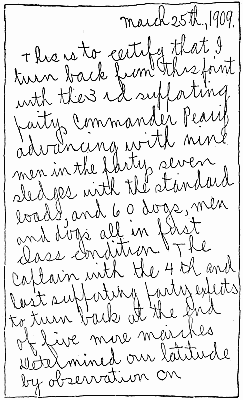 March 25th, 1909.
This is to certify that I
turn back from this point
with the 3rd supporting
party, Commander Peary
advancing with nine
men in the party, seven
sledges with the standard
loads, and 60 dogs, men
and dogs all in first
class condition The
captain with the 4th and
last supporting party expects
to turn back at the end
of five more marches
Determined our latitude
by observation on